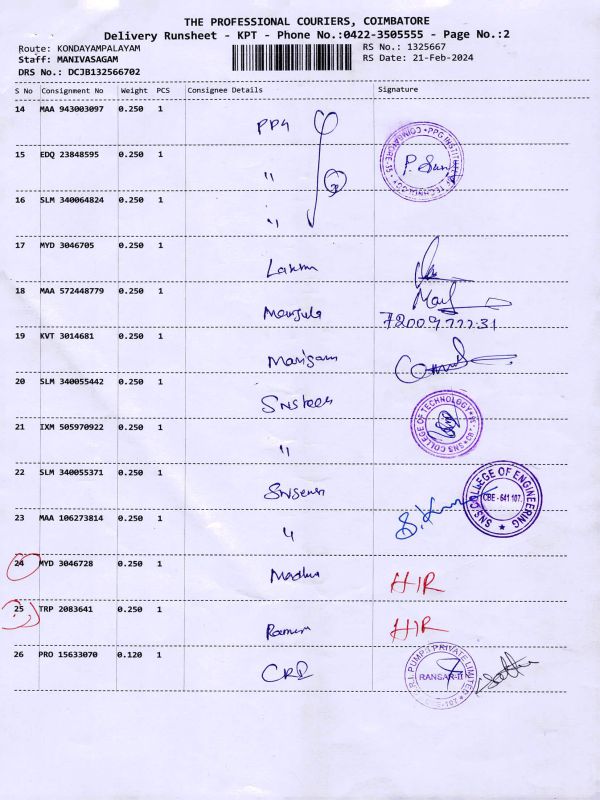 THE PROFESSIONAL COURIERS, COIMBATORE
Delivery Runsheet - KPT - Phone No.:0422-3505555 - Page No.:2
Route: KONDAYAMPALAYAM
RS No.: 1325667
Staff: MANIVASAGAM
RS Date: 21-Feb-2024
DRS No.: DCJB132566702
S No Consignment No Weight PCS Consignee Details Signature
14 MAA 943003097 0.250 1
PPG
15 EDQ 23848595 0.250 1
"
PPG INSTITUTE TECHNOLOGY COIMBATORE-35
16 SLM 340064824 0.250 1
"
17 MYD 3046705 0.250 1
Laxmi
18 MAA 572448779 0.250 1
Manjula
19 KVT 3014681 0.250 1
20 SLM 340055442 0.250 1
21 IXM 505970922 0.250 1
"
SNS COLLEGE OF TECHNOLOGY
22 SLM 340055371 0.250 1
SNS COLLEGE OF ENGINEERING
CBE - 641 107.
23 MAA 106273814 0.250 1
"
24 MYD 3046728 0.250 1
HIR
25 TRP 2083641 0.250 1
HIR
26 PRO 15633070 0.120 1
CRI
PUMPS PRIVATE LIMITED